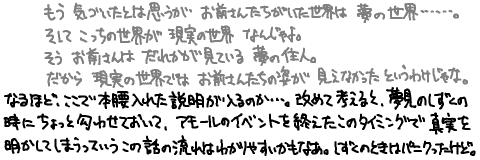 もう 気づいたとは思うが お前さんたちがいた世界は 夢の世界……。
そして こっちの世界が 現実の世界 なんじゃよ。
そう お前さんは だれかが見ている 夢の住人。
だから 現実の世界では お前さんたちの姿が 見えなかった というわけじゃな。
なるほど、ここで本腰入れた説明が入るのか…。改めて考えると、夢見のしずくの
時にちょっと匂わせておいて、アモールのイベントを終えたこのタイミングで真実を
明かしてしまうっていうこの話の流れはわかりやすいかもなあ。しずくのときはパニクったけど。